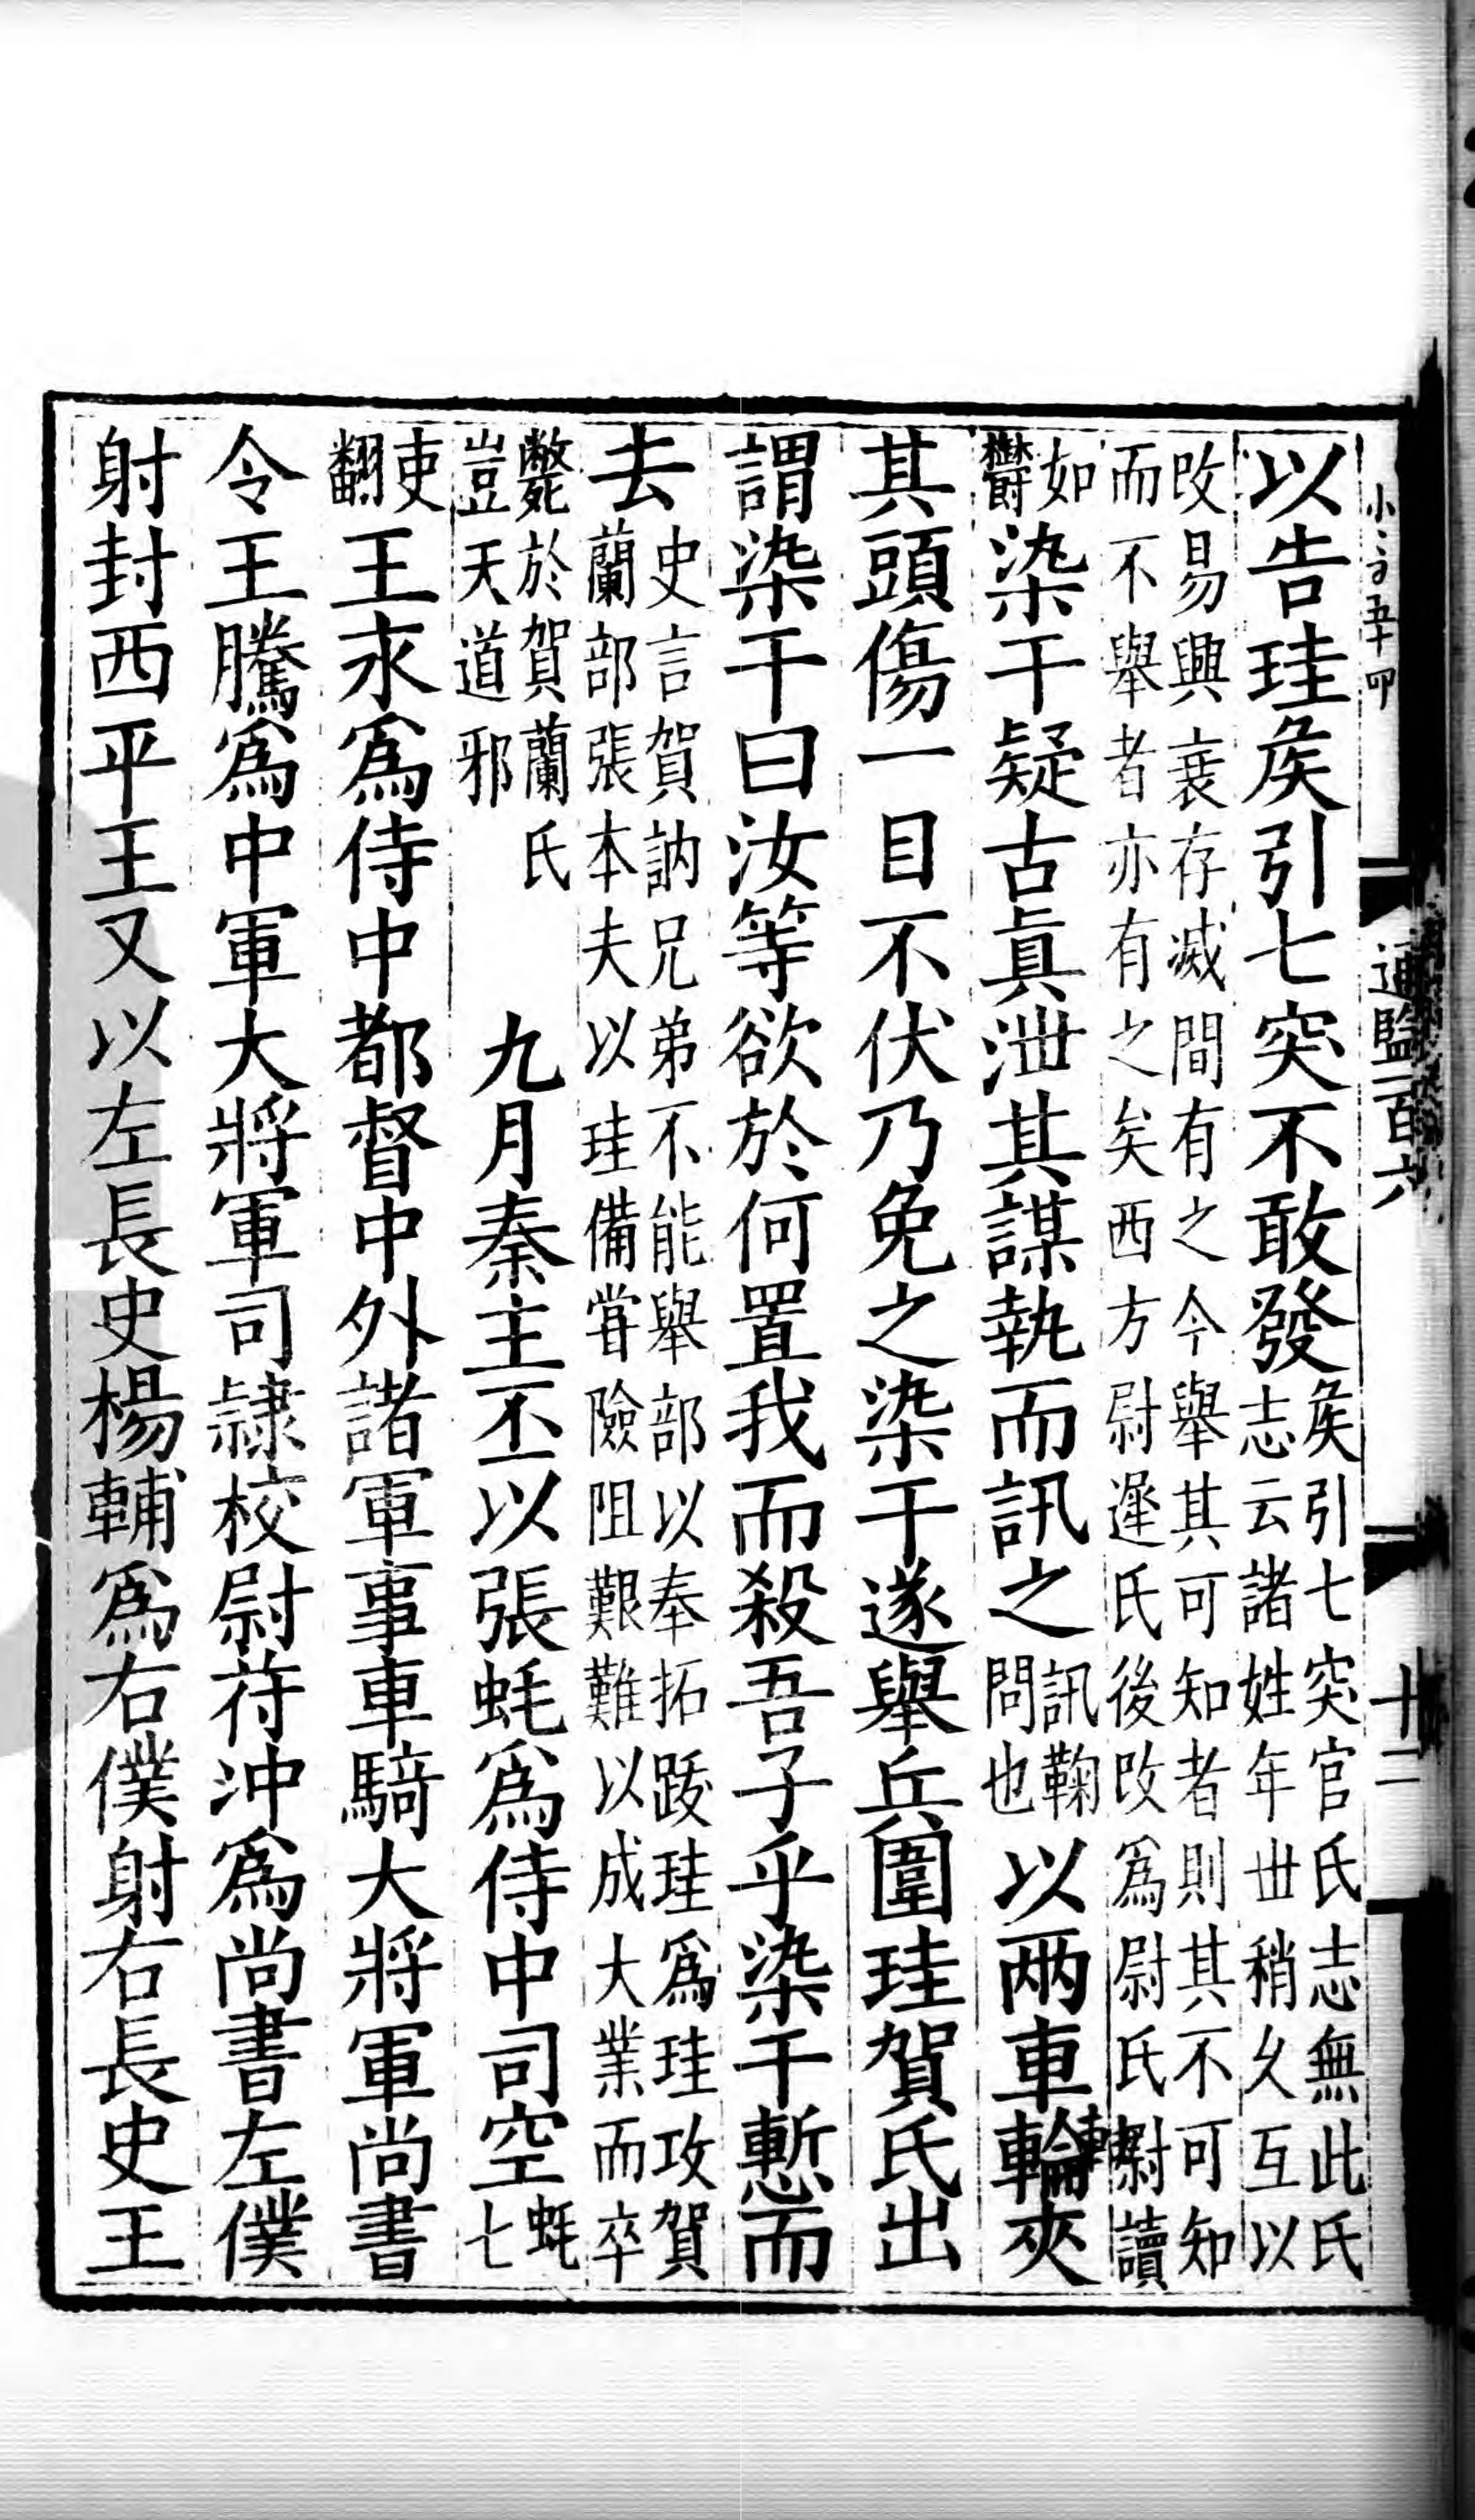 以告珪矦引七突不敢發矦引七突官氏志無此氏志云諸姓年世稍久互以
改易興衰存滅間有之今舉其可知者則其不可知而不舉者亦有之矣西方尉遲氏後改爲尉氏尉讀
如鬱染干疑古眞泄其謀執而訊之訊鞠問也以兩車輪夾
其頭傷一目不伏乃免之染干遂舉兵圍珪賀氏出
謂染干曰汝等欲於何置我而殺吾子乎染干慙而
去史言賀訥兄弟不能舉部以奉拓跋珪爲珪攻賀蘭部張本夫以珪備甞險阻艱難以成大業而卒
斃於賀蘭氏豈天道邪九月秦主丕以張蚝爲侍中司空蚝七
吏翻王永爲侍中都督中外諸軍事車騎大將軍尚書
令王騰爲中軍大將軍司隷校尉苻沖爲尚書左僕
射封西平王又以左長史楊輔爲右僕射右長史王
通鑑一百六
十二